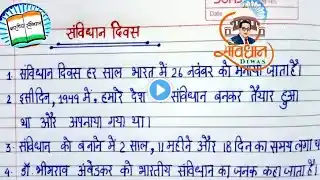 भारतीय संविधान
संविधान दिवस
संविधान
DIWAS
1. संविधान दिवस हर साल भारत में 26 नवंबर को मनाया जाता है।
2. इसी दिन, 1949 में, हमारे देश संविधान बनकर तैयार हुआ
था और अपनाया गया था।
3. संविधान को बनाने में 2 साल, 11 महीने और 18 दिन का समय लगा था
4. डॉ. भीमराव अंबेडकर को भारतीय संविधान का जनक कहा जाता है।